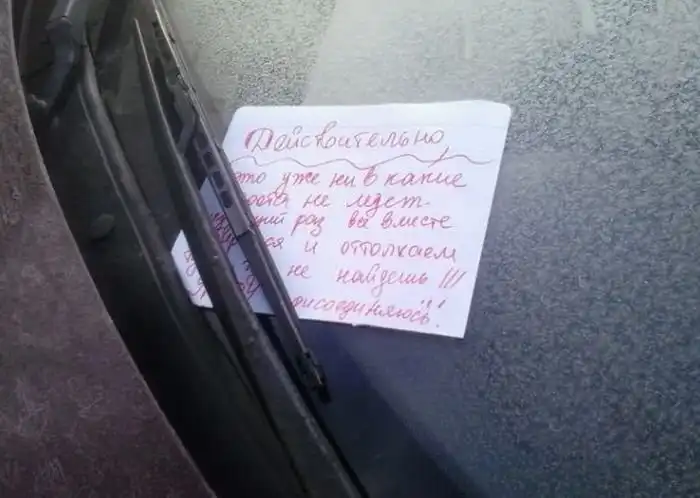 Действительно,
это уже ни в какие
не лезет-
раз все вместе
и оттолкаем
не найдешь!!!
присоединяюсь!!!